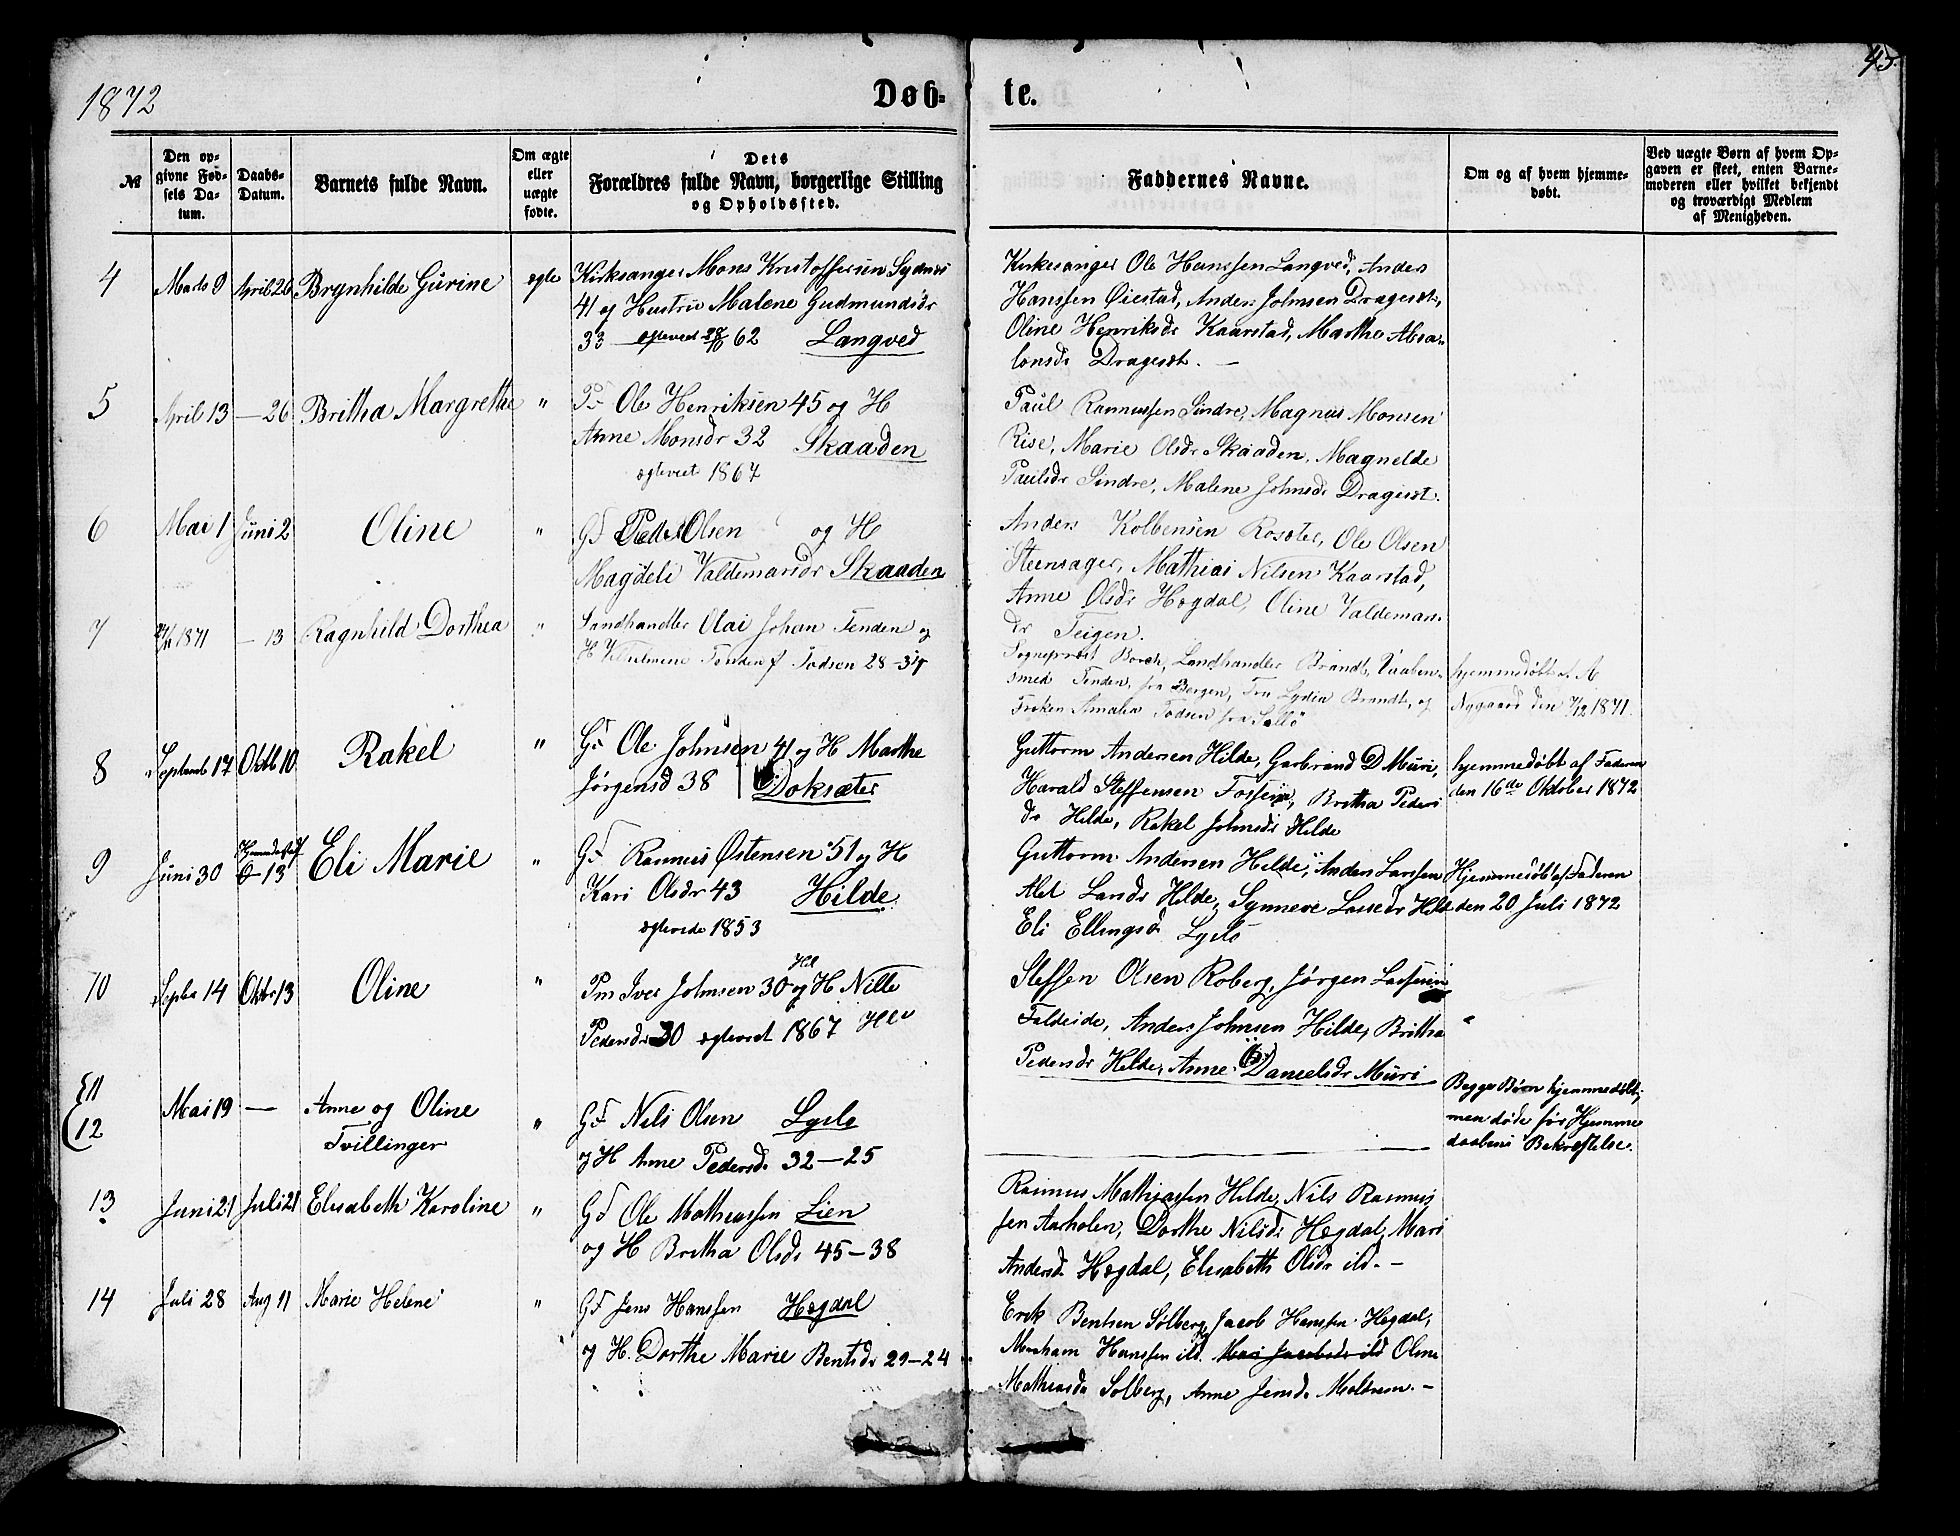 1872
Døb-
te.
43.
№
Den op-
givne Fød-
sels Da-
tum.
Daabs-
Datum.
Barnets fulde Navn.
Om ægte
eller
uægte
fødte.
Dets
Forældres fulde Navn, borgerlige Stilling
og Opholdssted.
Faddernes Navne.
Om og af hvem hjemme-
døbt.
Ved uægte Børn af hvem Op-
gaven er skeet, enten Barne-
moderen eller hvilket bekjendt
og troværdigt Medlem
af Menigheden.
4 Marts 9 April 26 Brynhilde Gurine ægte
Kirkesanger Mons Kristoffersen Sydnes
41 og Hustru Malene Gudmundsdr
33 ægteviet 28/10 62 Langved
Kirkesanger Ole Hanssen Langved, Anders
Hanssen Øiestad, Anders Johnsen Dragesæt,
Oline Henriksdr Kaarstad, Marthe Absa-
lonsdr Dragesæt. —
5 April 13 — 26 Britha Margrethe "
Ole Henriksen 45 og H
Anne Monsdr 32 Skaaden
ægteviet 1867
Paul Rasmussen Sindre, Magnus Monsen
Rise, Marie Olsdr Skaaden, Magnelde
Paulsdr Sindre, Malene Johnsdr Dragesæt.
6 Mai 1 Juni 2 Oline "
GF Peder Olsen og H
Magdeli Valdemarsdr Skaaden
Anders Kolbensen Rosæter, Ole Olsen
Steensager, Mathias Nilsen Kaarstad,
Anne Olsdr Hogdal, Oline Valdemars-
dr Teigen.
7 1871 — 13 Ragnhild Dorthea "
Landhandler Olai Johan Tenden og
H Vilhelmine Tenden f. Todsen 28 - 31
Sogneprest Borch, Landhandler Brandt, Vaaben-
smed Tenden, fra Bergen, Fru Lydia Brandt, og
Frøken Amalia Todsen fra
hjemmedøbt af A
Nygaard den 7/12 1871.
8 Septemb 17 Oktb 10 Rakel "
GF Ole Johnsen 41 og H Marthe
Jørgensd 38 Doksæter
Guttorm Andersen Hilde, Garbrand D Muri,
Harald Steffensen Fosseim, Britha Peders
dr Hilde, Rakel Johnsdr Hilde
hjemmedøbt af Faderen
den 16de Oktober 1872
9 Juni 30 O 13 Eli Marie "
GF Rasmus Østensen 51 og H
Kari Olsdr 43 Hilde
ægteviede 1853
Guttorm Andersen Hilde, Anders Larssen
Alet Larsdr Hilde, Synneve Lassedr Hilde
Eli Ellingsd Lyslo
Hjemmedøbt af Faderen
den 20 Juli 1872
10 Septbr 14 Oktbr 13 Oline "
Pm Iver Johnsen 30 og H Nille
Pedersdr 30 ægteviet 1867
Steffen Olsen Roberg, Jørgen Lassesen
Faldeide, Anders Johnsen Hilde, Britha
Pedersdr Hilde, Anne Danielsdr Muri
11
12 Mai 19 — Anne og Oline "
Tvillinger
GF Nils Olsen Lyslo
og H Anne Pedersd. 32—25
Begge Børn hjemmedøbt;
men døde før Hjemme
daabens Bekræftelse.
13 Juni 21 Juli 21 Elisabeth Karoline "
GF Ole Mathiassen Lien
og H Britha Olsdr 45—38
Rasmus Mathiassen Hilde, Nils Rasmus
sen Aarholen, Dorthe Nilsdr Hogdal, Mari
Andersd. Hogdal, Elisabeth Olsdr ild. —
14 Juli 28 Aug 11 Marie Helene "
GF Jens Hanssen Hogdal
og H. Dorthe Marie Bentsdr 29—24
Erik Bentsen Solberg, Jacob Hanssen Hogdal,
Abraham Hanssen ild. Mari Jacobsdr ild Oline
Mathiasdr Solberg, Anne Jensdr —